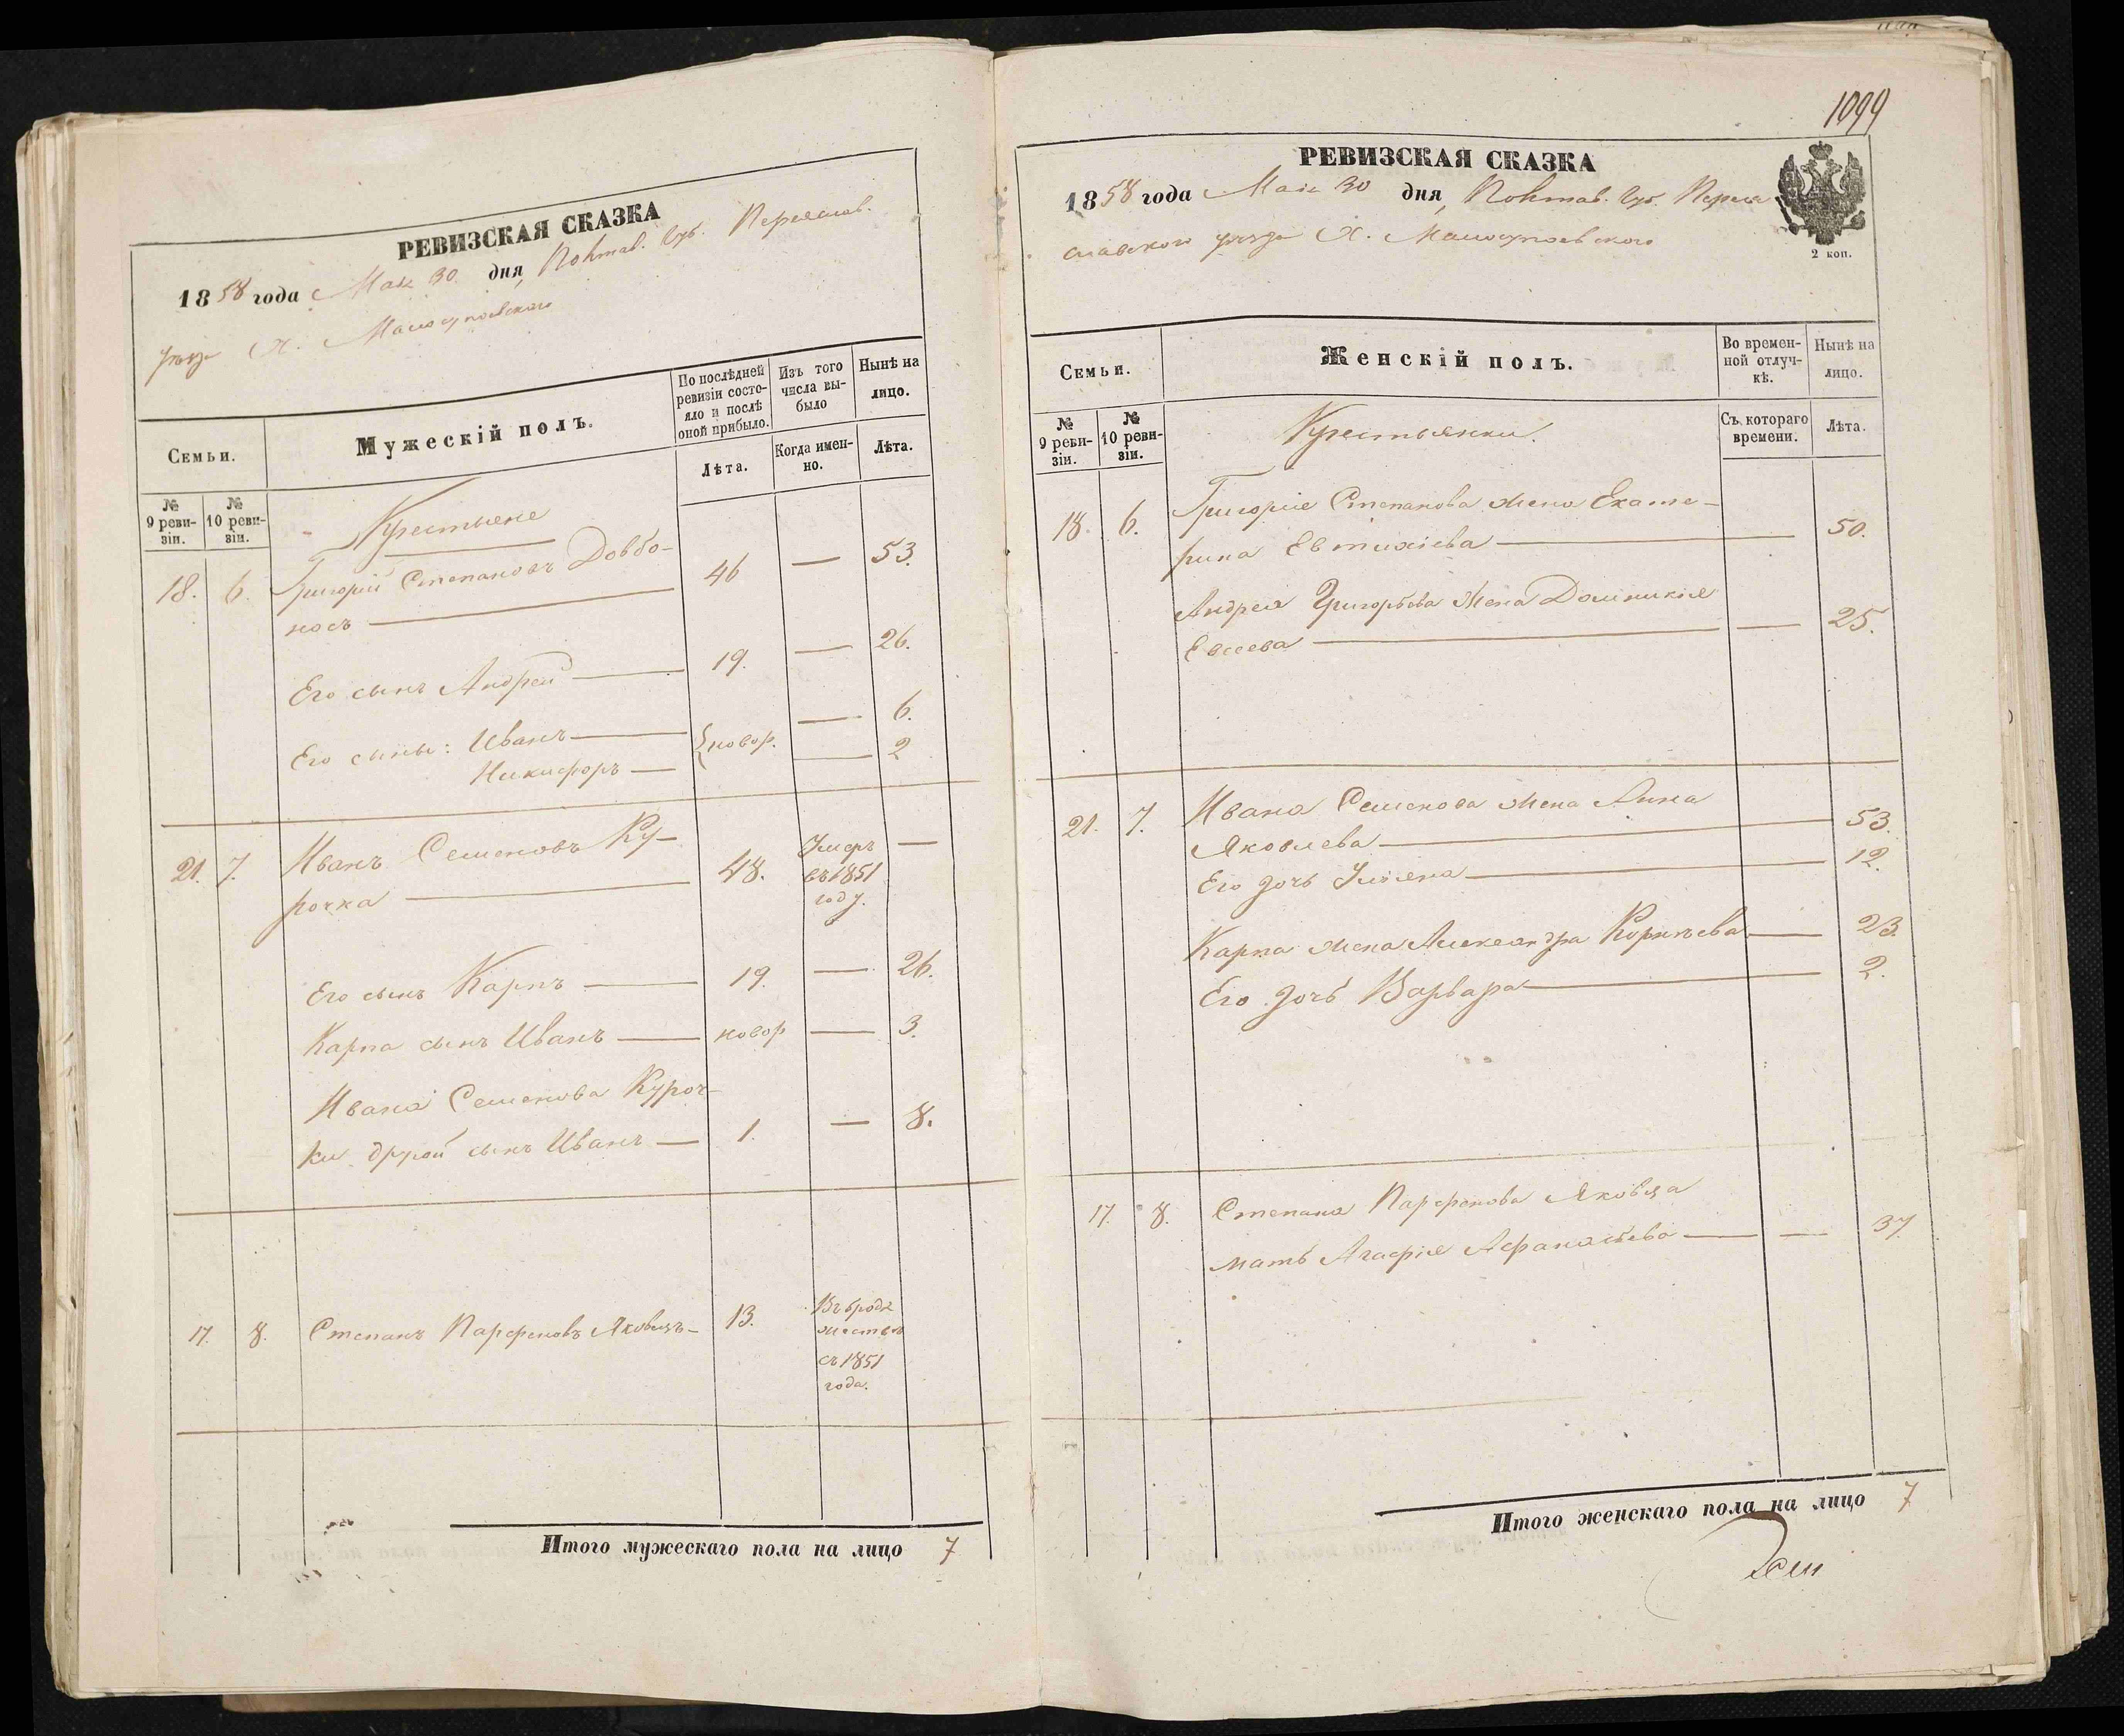 РЕВИЗСКАЯ СКАЗКА
1858 года Мая 30 дня, Полтав. Губ. Переяслав.
уѣзда Х. Малосупоевскаго
Семьи.
Мужескій полъ.
По послѣдней ревизіи состояло и послѣ оной прибыло.
Изъ того числа выбыло
Нынѣ на лицо.
№ 9 ревизіи.
№ 10 ревизіи.
Лѣта.
Когда именно.
Лѣта.
Крестьяне
18. 6. Григорій Степановъ Довбо-
носъ — 46 — 53.
Его сынъ Андрей — 19. — 26.
Его сыны: Иванъ — новор. — 6.
Никифоръ — — 2
21. 7. Иванъ Семеновъ Ку-
рочка — 48. Умеръ въ 1851 году. —
Его сынъ Карпъ — 19. — 26.
Карпа сынъ Иванъ — новор — 3.
Ивана Семенова Куроч-
ки другой сынъ Иванъ — 1. — 8.
17. 8. Степанъ Парфеновъ Яковецъ — 13. Въ бродяжествѣ съ 1851 года.
Итого мужескаго пола на лицо 7
1099
РЕВИЗСКАЯ СКАЗКА
1858 года Мая 30 дня, Полтав. Губ. Перея
славскаго уѣзда Х. Малосупоевскаго
2 коп.
Семьи.
Женскій полъ.
Во временной отлучкѣ.
Нынѣ на лицо.
№ 9 ревизіи.
№ 10 ревизіи.
Съ котораго времени.
Лѣта.
Крестьянки.
18. 6. Григорія Степанова жена Екате-
рина Евтихіева — 50.
Андрея Григорьева жена Домникія
Евсеева — — 25.
21. 7. Ивана Семенова жена Анна
Яковлева — 53.
Его дочь Уліяна — 12.
Карпа жена Александра Корнѣева — 23.
Его дочь Варвара — 2.
17. 8. Степана Парфенова Яковца
мать Агафія Афанасьева — — 37.
Итого женскаго пола на лицо 7